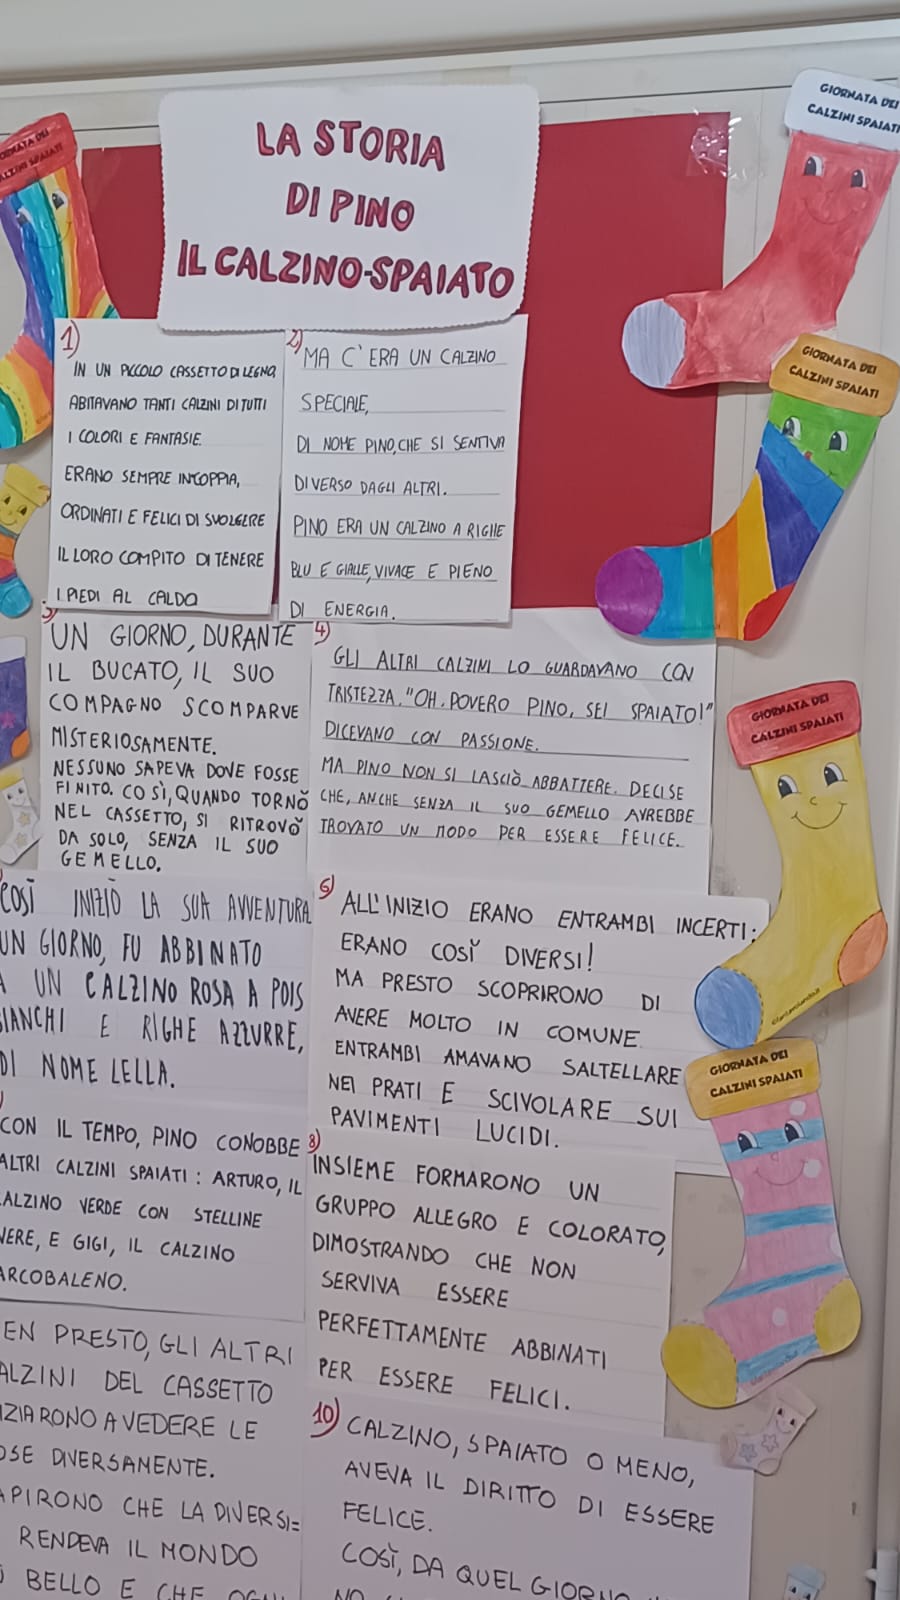 LA STORIA
DI PINO
IL CALZINO-SPAIATO
GIORNATA DEI
CALZINI SPAIATI
GIORNATA DEI
CALZINI SPAIATI
1)
IN UN PICCOLO CASSETTO DI LEGNO,
ABITAVANO TANTI CALZINI DI TUTTI
I COLORI E FANTASIE.
ERANO SEMPRE IN COPPIA,
ORDINATI E FELICI DI SVOLGERE
IL LORO COMPITO DI TENERE
I PIEDI AL CALDO
2)
MA C'ERA UN CALZINO
SPECIALE,
DI NOME PINO, CHE SI SENTIVA
DIVERSO DAGLI ALTRI.
PINO ERA UN CALZINO A RIGHE
BLU E GIALLE, VIVACE E PIENO
DI ENERGIA.
GIORNATA DEI
CALZINI SPAIATI
3)
UN GIORNO, DURANTE
IL BUCATO, IL SUO
COMPAGNO SCOMPARVE
MISTERIOSAMENTE.
NESSUNO SAPEVA DOVE FOSSE
FINITO. COSÌ, QUANDO TORNÒ
NEL CASSETTO, SI RITROVÒ
DA SOLO, SENZA IL SUO
GEMELLO.
4)
GLI ALTRI CALZINI LO GUARDAVANO CON
TRISTEZZA. "OH, POVERO PINO, SEI SPAIATO!"
DICEVANO CON PASSIONE.
MA PINO NON SI LASCIÒ ABBATTERE. DECISE
CHE, ANCHE SENZA IL SUO GEMELLO AVREBBE
TROVATO UN MODO PER ESSERE FELICE.
GIORNATA DEI
CALZINI SPAIATI
COSÌ INIZIÒ LA SUA AVVENTURA
UN GIORNO, FU ABBINATO
A UN CALZINO ROSA A POIS
BIANCHI E RIGHE AZZURRE,
DI NOME LELLA.
6)
ALL'INIZIO ERANO ENTRAMBI INCERTI:
ERANO COSÌ DIVERSI!
MA PRESTO SCOPRIRONO DI
AVERE MOLTO IN COMUNE.
ENTRAMBI AMAVANO SALTELLARE
NEI PRATI E SCIVOLARE SUI
PAVIMENTI LUCIDI.
GIORNATA DEI
CALZINI SPAIATI
CON IL TEMPO, PINO CONOBBE
ALTRI CALZINI SPAIATI: ARTURO, IL
CALZINO VERDE CON STELLINE
NERE, E GIGI, IL CALZINO
ARCOBALENO.
8)
INSIEME FORMARONO UN
GRUPPO ALLEGRO E COLORATO,
DIMOSTRANDO CHE NON
SERVIVA ESSERE
PERFETTAMENTE ABBINATI
PER ESSERE FELICI.
EN PRESTO, GLI ALTRI
ALZINI DEL CASSETTO
IZIARONO A VEDERE LE
OSE DIVERSAMENTE.
APIRONO CHE LA DIVERSI=
RENDEVA IL MONDO
BELLO E CHE
10)
CALZINO, SPAIATO O MENO,
AVEVA IL DIRITTO DI ESSERE
FELICE.
COSÌ, DA QUEL GIORNO